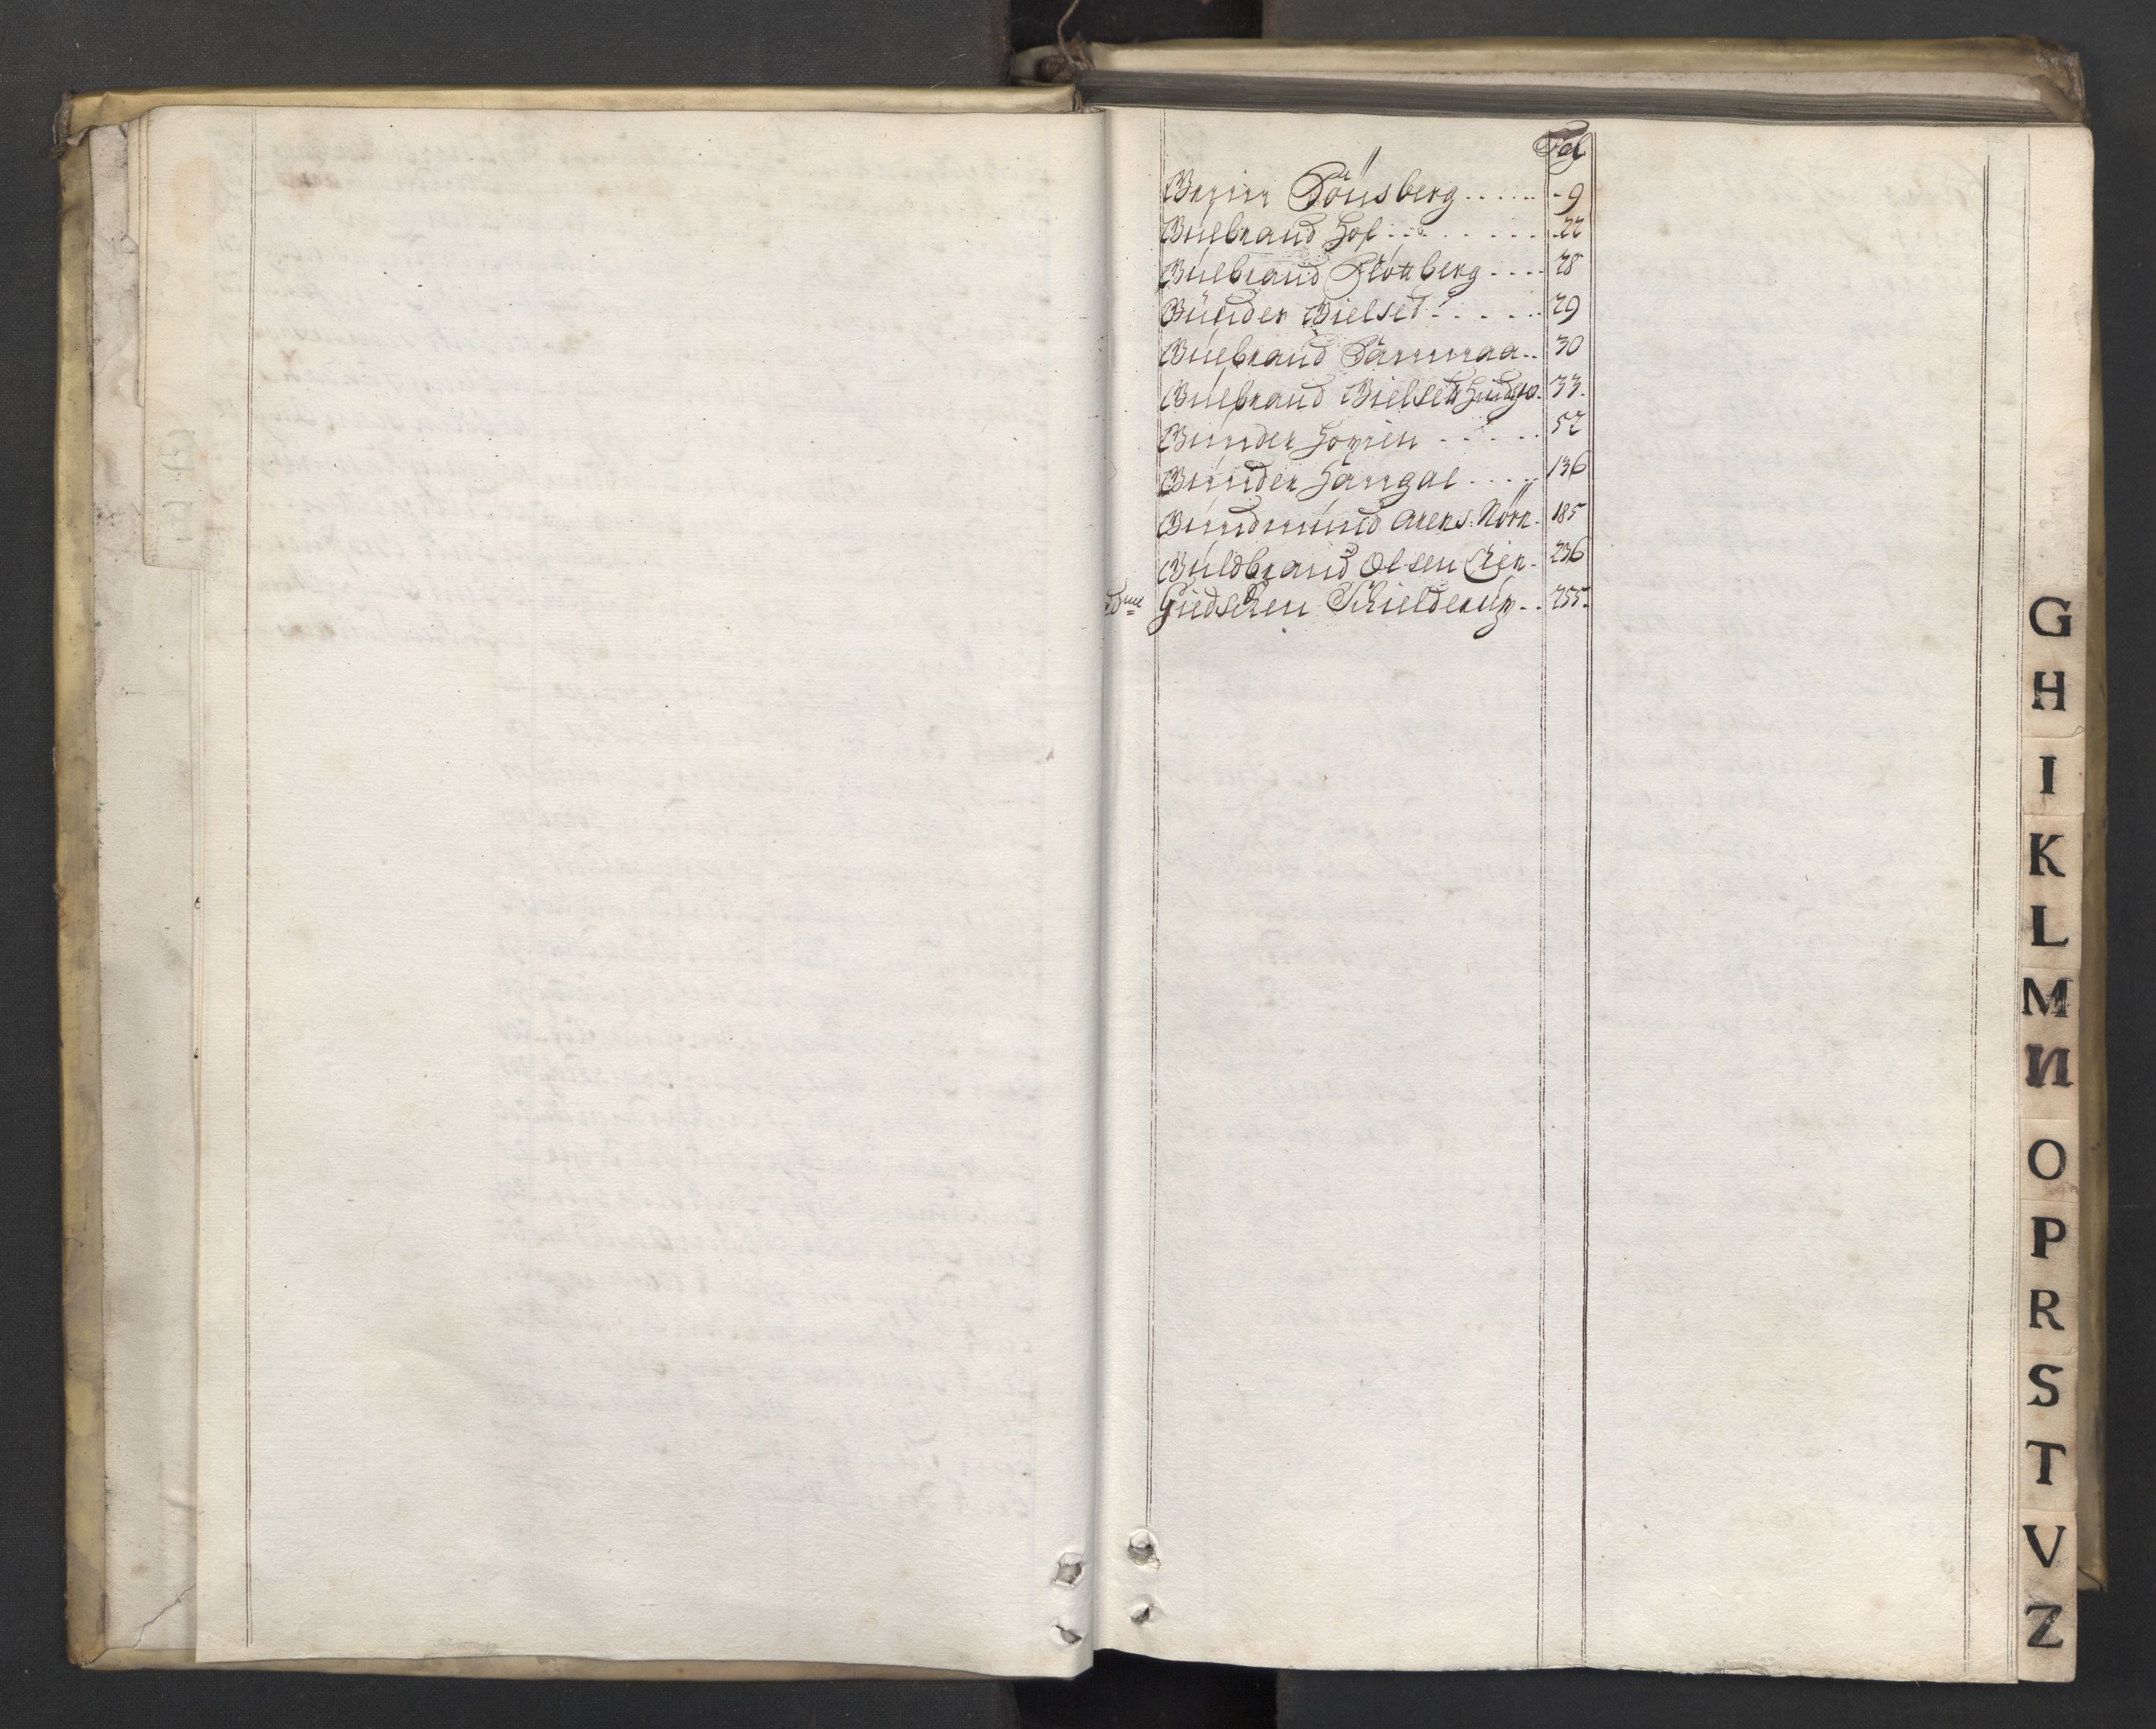 Fol
Gunder Tönsberg...... 9
Gulbrand Hof........ 22
Gulbrand Klottberg.... 28
Gunder Bielset...... 29
Gulbrand Sammaa.. 30
Gulbrand Bielset 33.
Gunder Hovien..... 52
Gunder Hangal..... 136
Gundmund Arens. Nörr. 185
Guldbrand Olsen Eier. 236
Giedschen Schielderup.. 255.
G
H
I
K
L
M
N
O
P
R
S
T
V
Z